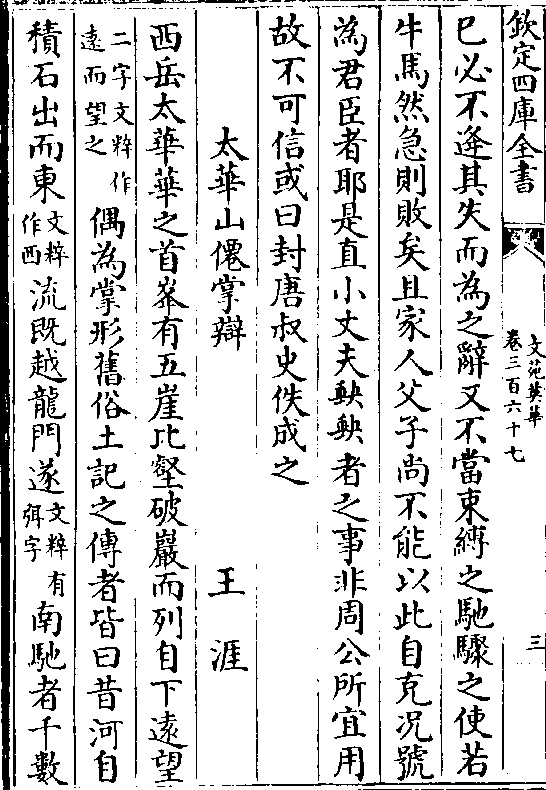 欽定四庫全書
文苑英華
卷三百六十七
三
巳必不逄其失而為之辭又不當束縛之馳驟之使若
牛馬然急則敗矣且家人父子尚不能以此自克况號
為君臣者耶是直小丈夫𡙇𡙇者之事非周公所宜用
故不可信或曰封唐叔史佚成之
太華山僊掌辯
王涯
西岳太華華之首峯有五崖比壑破巖而列自下遠望
二字文粹作
遠而望之
偶為掌形舊俗土記之傳者皆曰昔河自
積石出而東
文粹
作西
流既越龍門遂
文粹有
弭字
南馳者千數